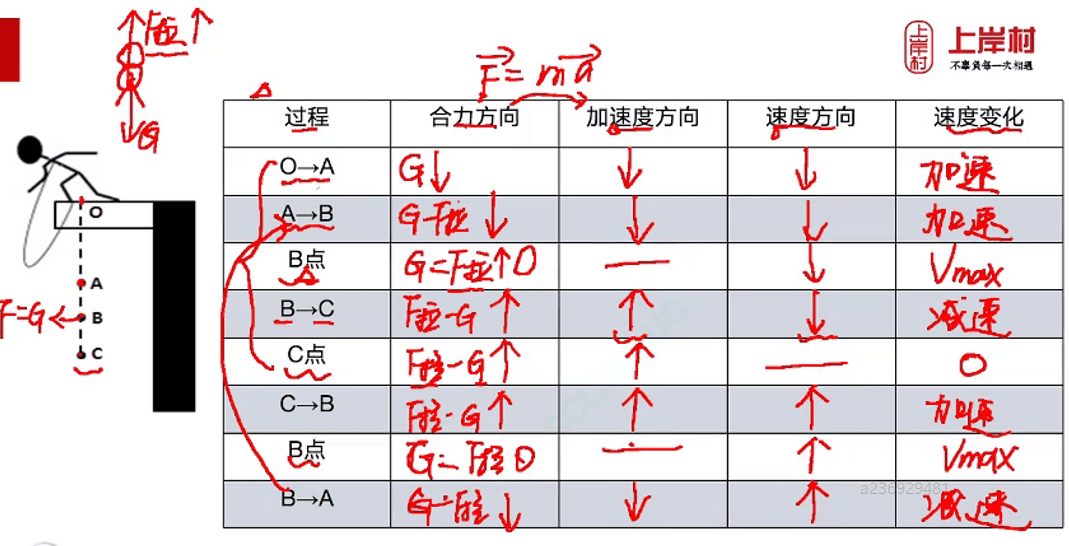 F拉
G
上岸村
上岸村
不辜負每一次相遇
F=ma
过程 合力方向 加速度方向 速度方向 速度变化
O→A G↓ ↓ ↓ 加速
A→B G-F拉 ↓ ↓ ↓ 加速
B点 G=F拉↑ 0 — ↓ Vmax
B→C F拉-G ↑ ↑ ↓ 减速
C点 F拉-G ↑ ↑ — 0
C→B F拉-G ↑ ↑ ↑ 加速
B点 G=F拉 0 — ↑ Vmax
B→A G-F拉 ↓ ↓ ↑ 减速
O
A
F=G B
C
a236929481